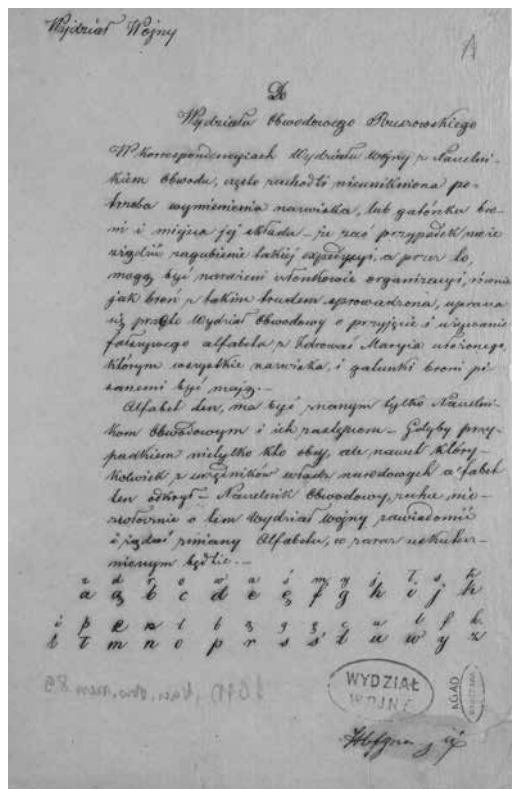 Wydział Wojny
Do
Wydziału Obwodowego Rzeszowskiego
W korrespondencyjach Wydziału Wojny z Naczelni-
kiem Obwodu, często zachodzi nieunikniona po-
trzeba wymienienia nazwiska, lub gatunku bro-
ni i miejsca jej składu – że zaś przypadek może
zrządzić zagubienie takiej expedycyi, a przez to,
mogą być narażeni członkowie organizacyi, równie
jak broń z takim trudem sprowadzona, uprasza
się przeto Wydział Obwodowy o przyjęcie i używanie
następującego alfabetu z Zdrowaś Maryja ułożonego,
którym wszystkie nazwiska, i gatunki broni pi-
sanemi być mają. –
Alfabet ten, ma być znanym tylko Naczelni-
kom Obwodowym i ich zastępcom – Gdyby przy-
padkiem nietylko kto obcy, ale nawet który-
kolwiek z urzędników władz narodowych alfabet
ten odkrył – Naczelnik Obwodowy, zechce nie-
zwłocznie o tem Wydział Wojny zawiadomić
i żądać zmiany Alfabetu, co zaraz uskutecz-
nionym będzie. –
z d r o w a ś m y j ł s k
a ą b c d e ę f g h i j k
l ł m n o p r s ś t u w y z
WYDZIAŁ
WOJNY
AGAD